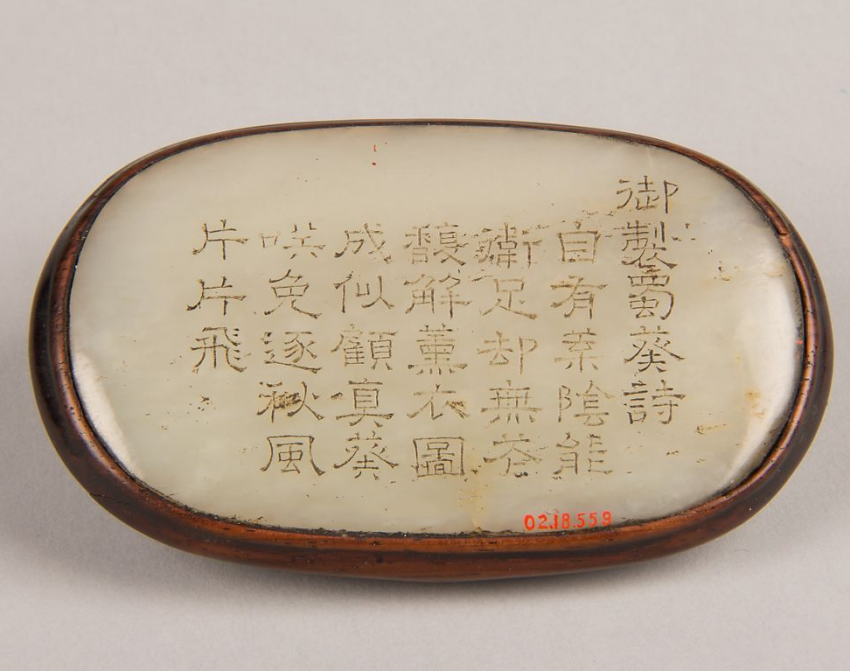 御製蜀葵詩
自有葉陰能
衛足却無花
馥解薰衣圖
成似顧真葵
咲免逐秋風
片片飛
02.18.559